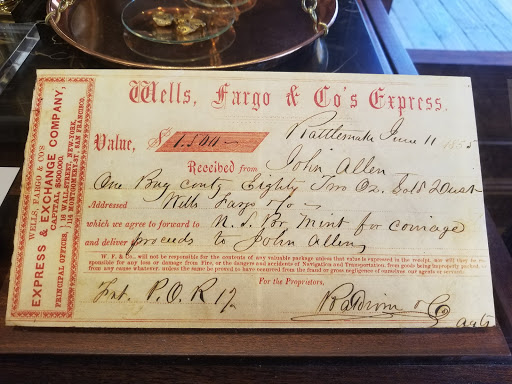 WELLS, FARGO & CO'S
EXPRESS & EXCHANGE COMPANY,
CAPITAL, $500,000.
PRINCIPAL OFFICES, 16 WALL-STREET, NEW-YORK,
114 MONTGOMERY-ST. SAN FRANCISCO.
Wells, Fargo & Co's Express.
Value, $1,500
Rattlesnake June 11 1855
Received from John Allen
One Bag contg Eighty Two Oz. Gold Dust
Addressed Wells Fargo & Co
which we agree to forward to U.S. Br Mint for coinage
and deliver proceeds to John Allen
W. F. & Co., will not be responsible for the contents of any valuable package unless that value is expressed in the receipt, nor will they be re-
sponsible for any loss or damage from Fire, or the dangers and accidents of Navigation and Transportation, from goods being improperly packed,
from any cause whatever, unless the same be proved to have occurred from the fraud or gross negligence of ourselves our agents or
For the Proprietors.
P.O.R 12
Baldwin & Co
agts